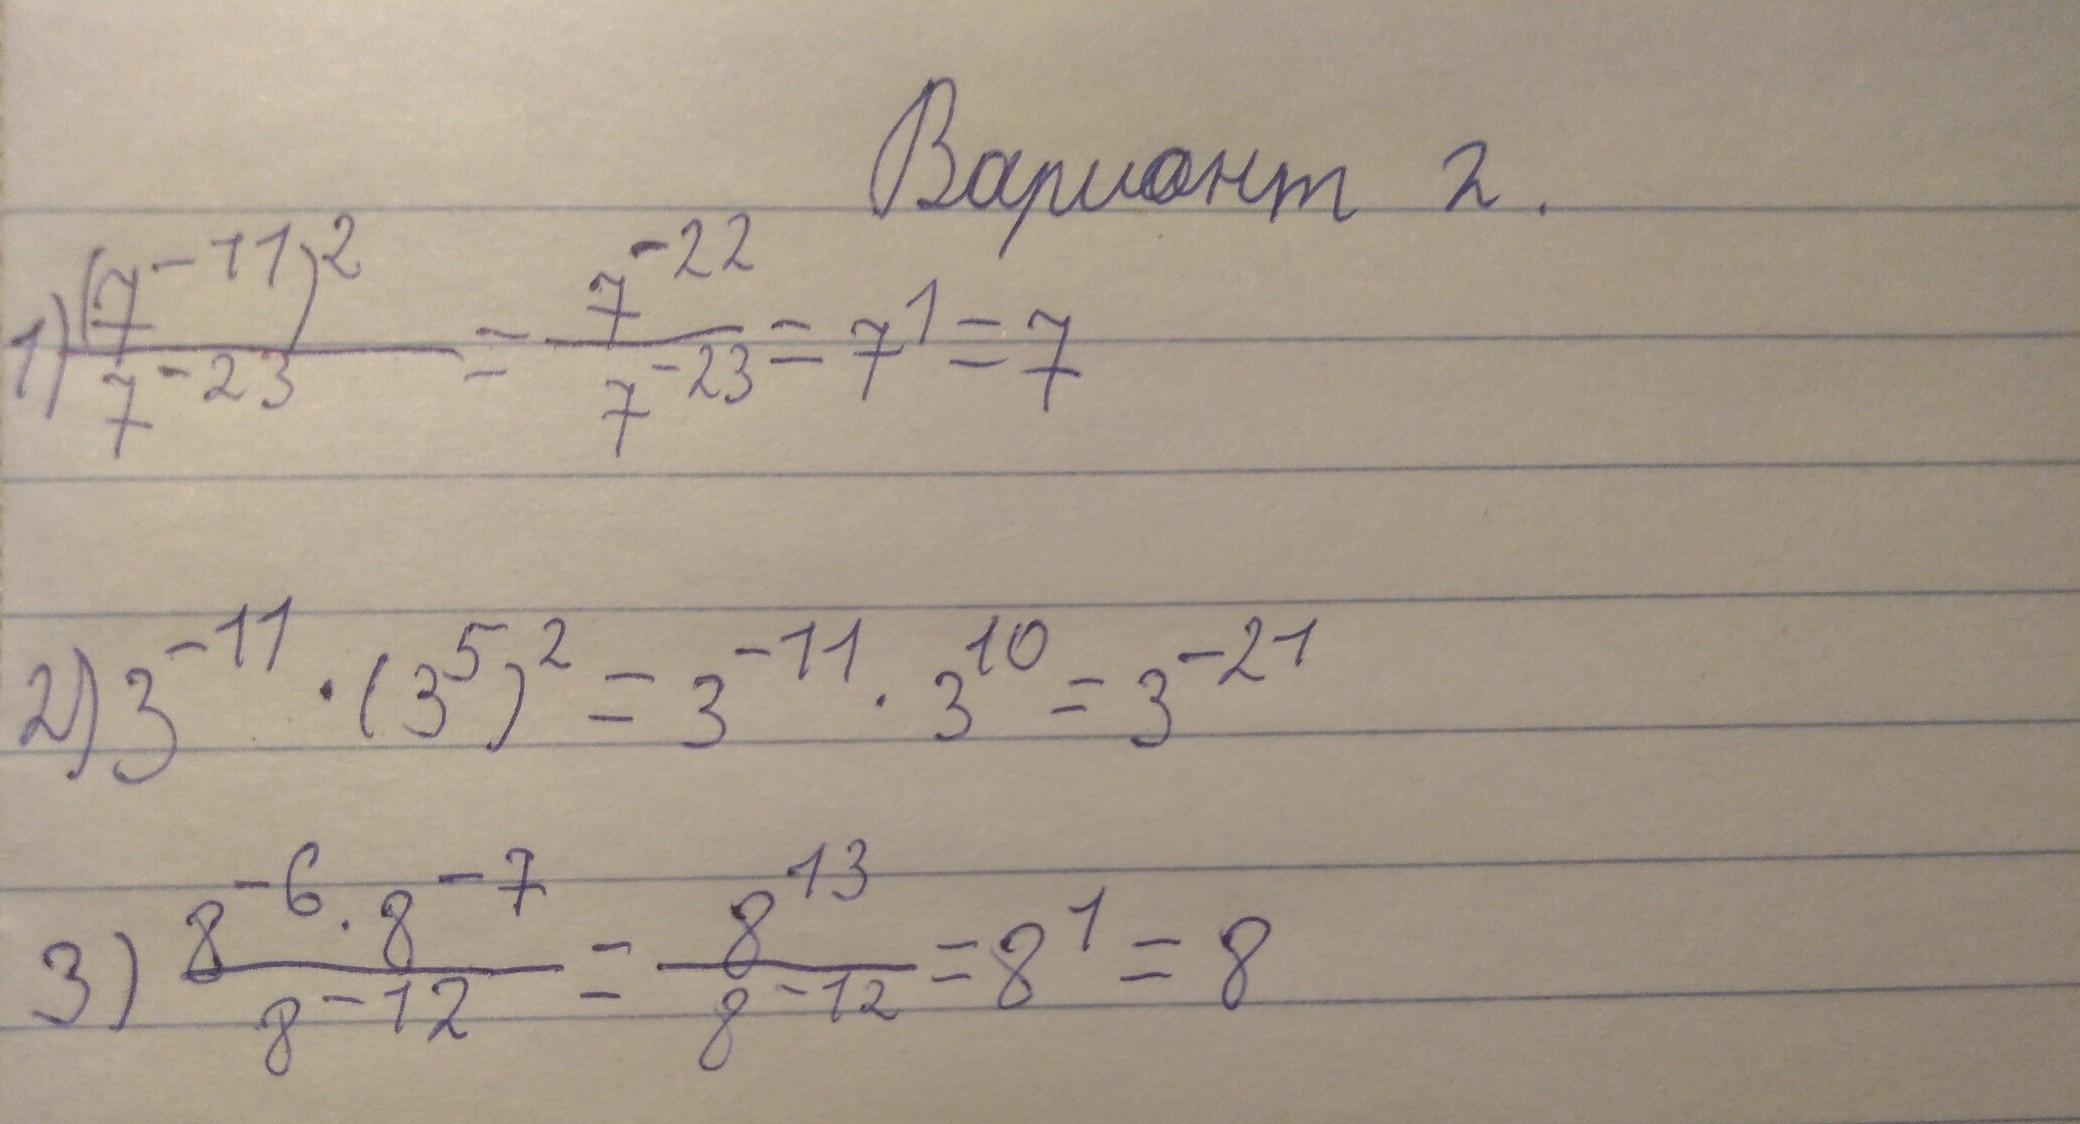 Вариант 2.
1) (7^-11)^2 / 7^-23 = 7^-22 / 7^-23 = 7^1 = 7
2) 3^-11 · (3^5)^2 = 3^-11 · 3^10 = 3^-21
3) 8^-6 · 8^-7 / 8^-12 = 8^13 / 8^-12 = 8^1 = 8